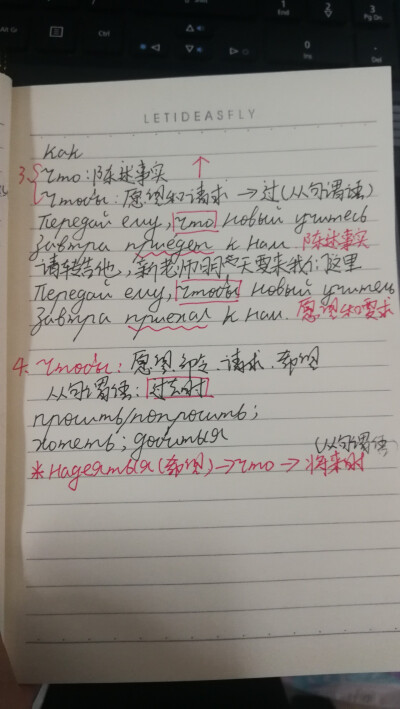 LETIDEASFLY
как
3. что: 陈述事实
чтобы: 愿望和请求 → 过(从句谓语)
Передай ему, что новый учитель
завтра приедет к нам. 陈述事实
请转告他, 新老师明天要来我们这里
Передай ему, чтобы новый учитель
завтра приехал к нам. 愿望和要求
4. чтобы: 愿望.命令.请求.希望
从句谓语: 过去时
просить/попросить;
хотеть; добиться (从句谓语)
* надеяться (希望) → что → 将来时